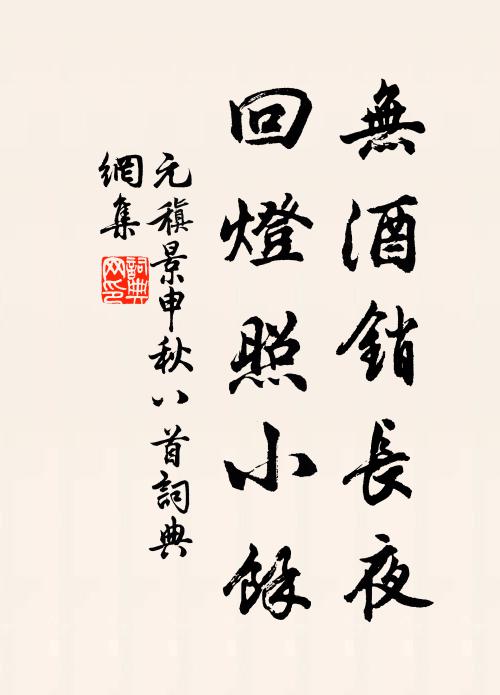 無酒銷長夜
回燈照小餘
元稹景申秋八首詞典
網集
詞典网印